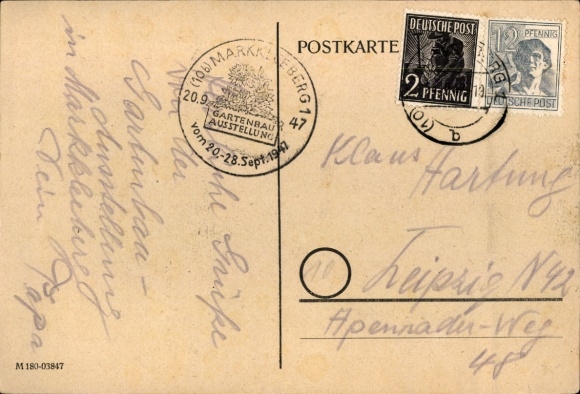 POSTKARTE
(10b) MARKKLEEBERG 1
20.9 47
GARTENBAU
AUSSTELLUNG
vom 20.-28. Sept. 1947
DEUTSCHE POST
2 PFENNIG
12 PFENNIG
DEUTSCHE POST
Herzliche Grüße
von der
Gartenbau-
Ausstellung
in Markkleeberg
Dein Papa
Klaus
Hartung
10
Leipzig N 42
Apenrader-Weg
48
M 180-03847